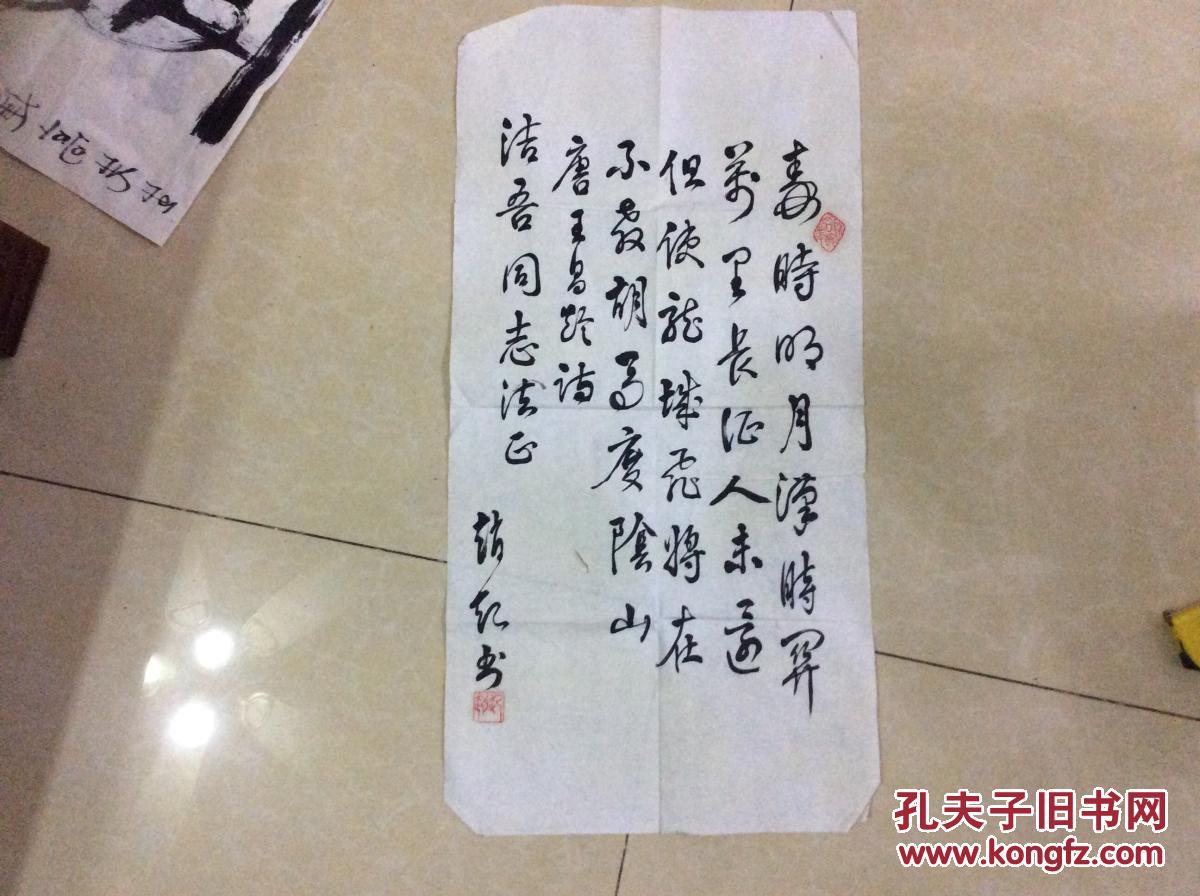 秦時明月漢時関
萬里長征人未還
但使龍城飛將在
不教胡馬度陰山
唐王昌齡詩
洁吾同志法正
趙起书
孔夫子旧书网
www.kongfz.com